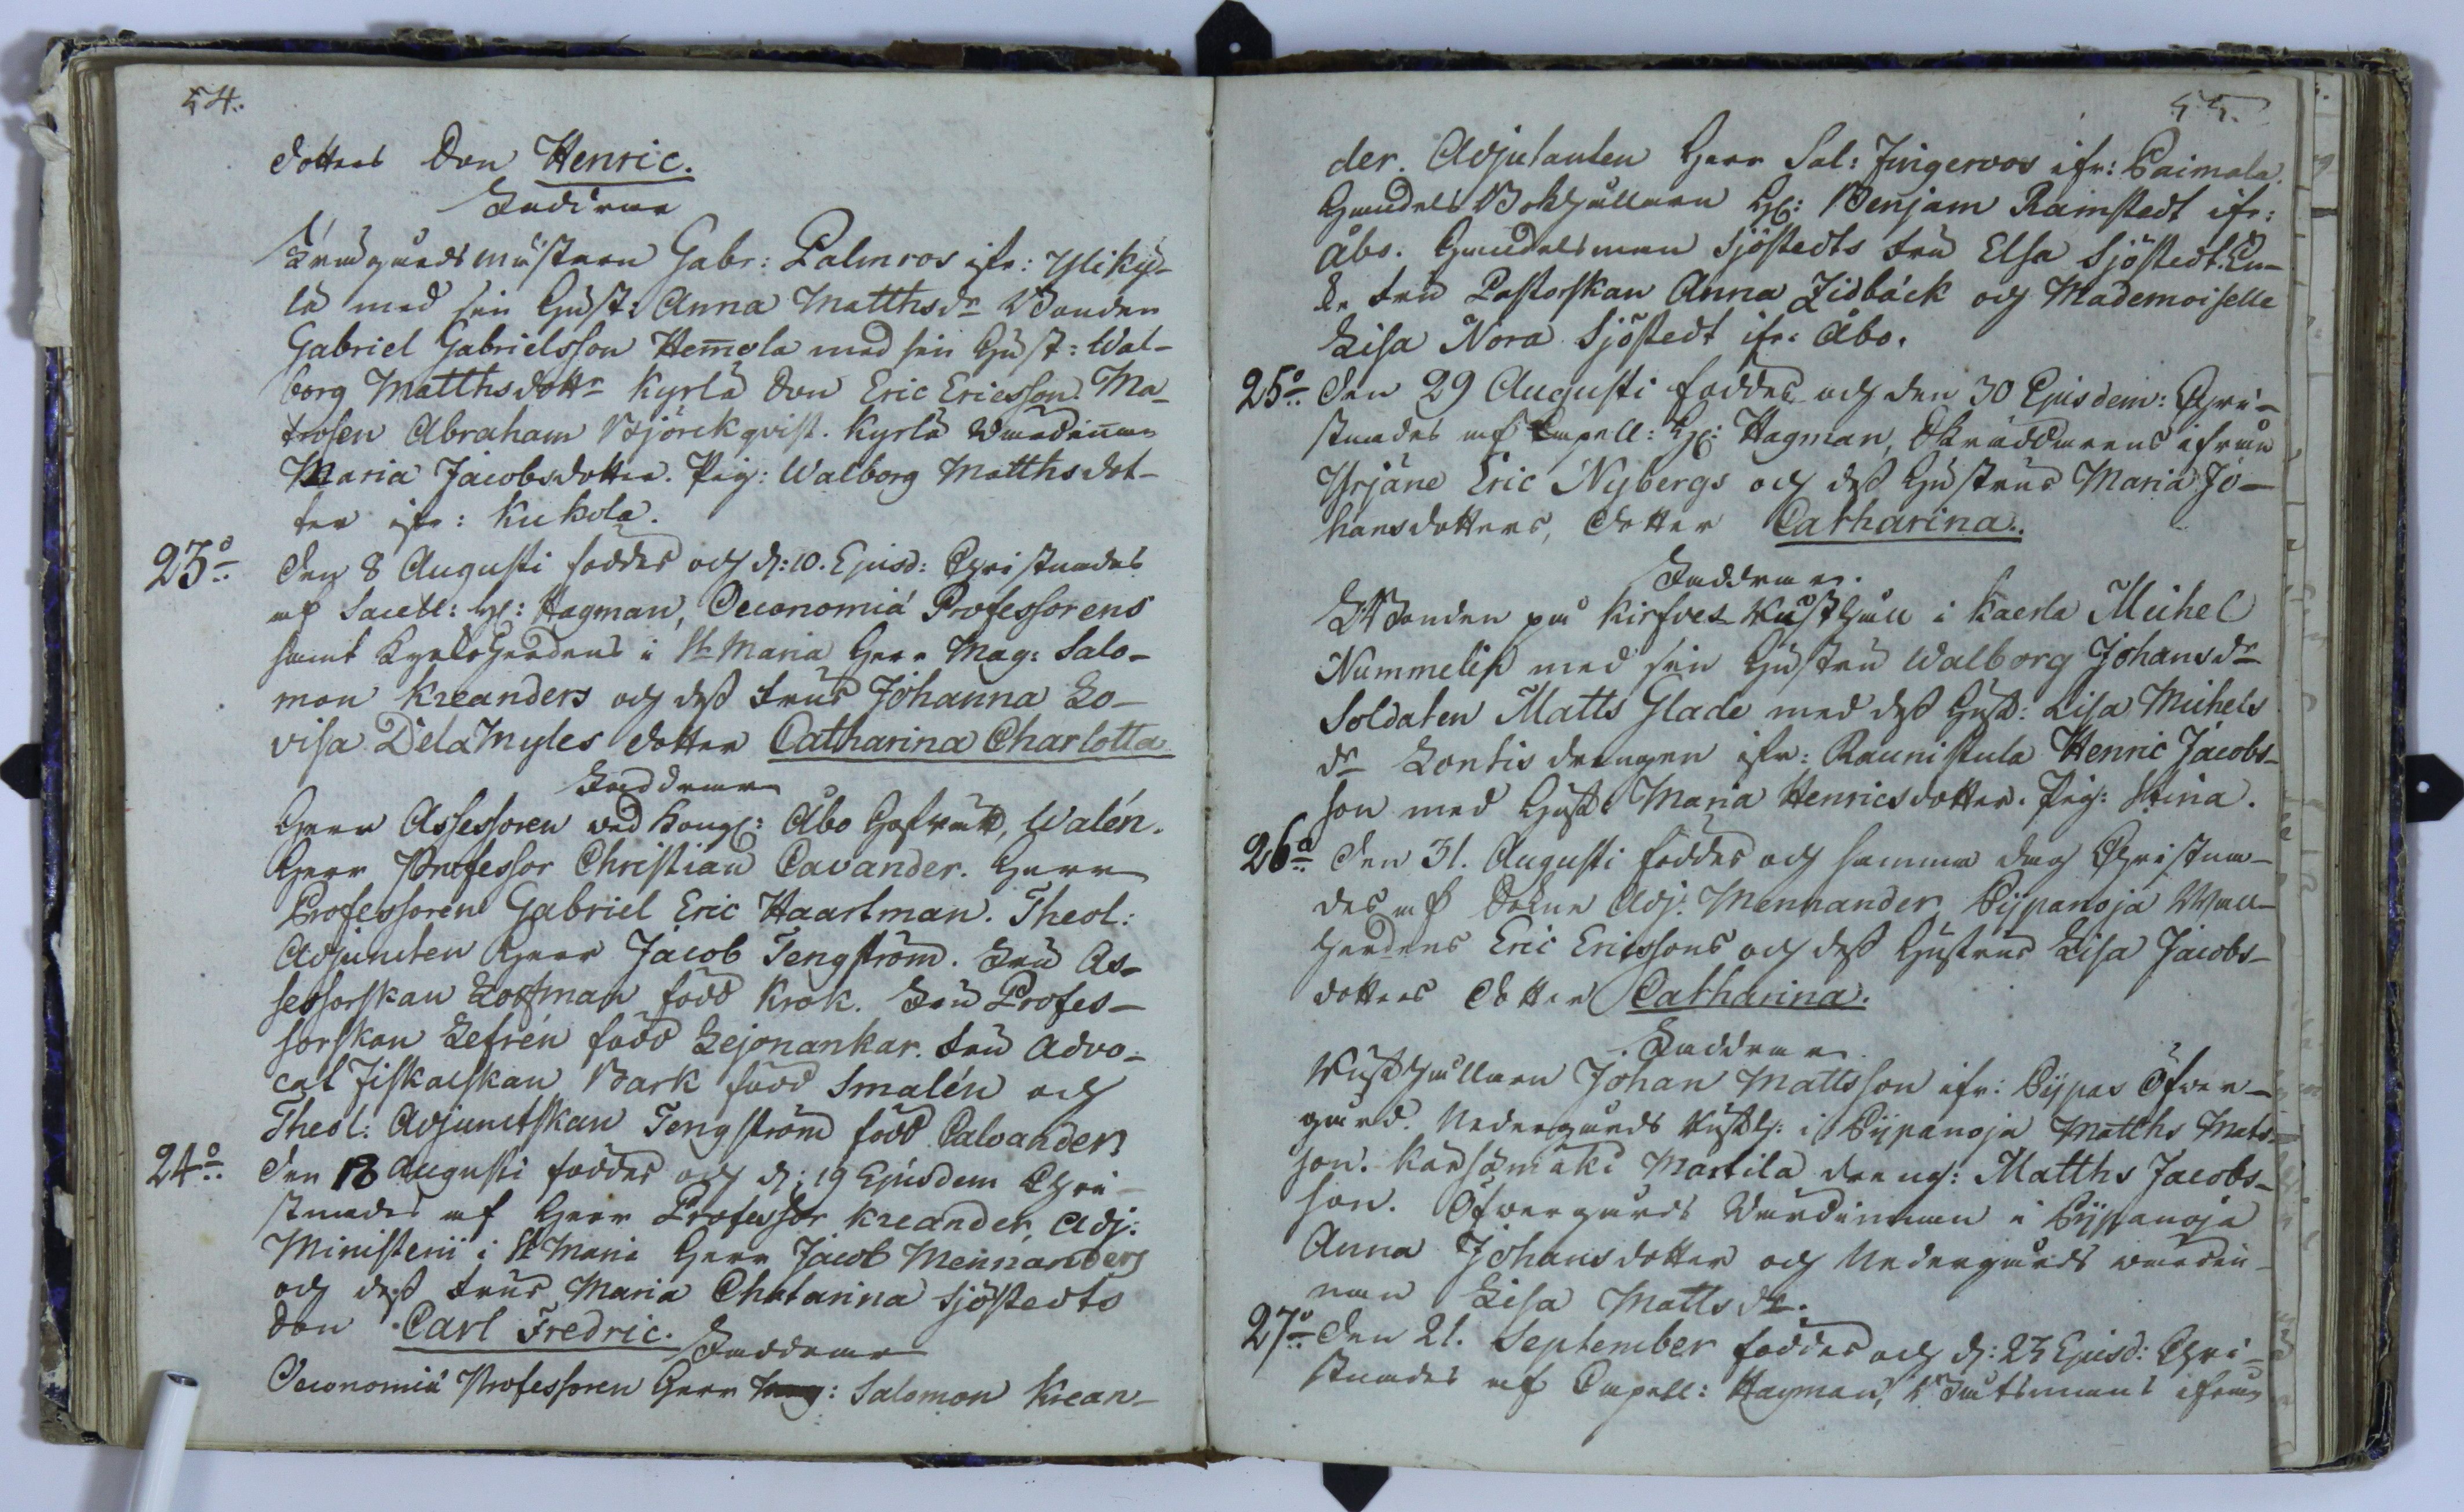 54.
dotters Son Henric.
Faddrar
Trädgårdsmästaren Gabr: Palmros ifr: Ylikÿ-
lä med sin Hust: Anna Matthsdr Bonden
Gabriel Gabrielsson Hem̅ola med sin Hust: Wal-
borg Matthsdottr Kyrlä Son Eric Ericsson. Ma-
trosen Abraham Björckqvist. Kyrlä Wärdinnan
Maria Jacobsdotter. Pig: Walborg Matthsdot-
ter ifr: Kukola.
23o Den 8 Augusti föddes och d: 10. Ejusd: Christnades
af Sacell: H: Hagman, Oeconomiæ Professorens
samt Kyrkoherdens i St Maria Herr Mag: Salo-
mon Kreanders och dess Frus Johanna Lo-
visa DelaMyles dotter Catharina Charlotta
Faddrar
Herr Assessoren ved Kongl: Åbo Hofrätt, Walén.
Herr Professor Christian Cavander. Herr
Professoren Gabriel Eric Haartman. Theol:
Adjuncten Herr Jacob Tengström. Fru As-
sessorskan född Krok. Fru Profes-
sorskan Lefrén född Lejonankar. Fru Advo-
cat Fiskalskan Bark född Smalén och
Theol: Adjunctskan Tengström född Caloander
24o Den 18 Augusti föddes och d: 19 Ejusdem Chri-
stnades af Herr Professor Kreander, Adj:
Ministerii i St Maria Herr Jacob Mennanders
och dess Frus Maria Chatarina Sjöstedts
Son Carl Fredric. Faddrar
Oeconomiæ Professoren Herr Mag: Salomon Krean-
55.
der. Adjutanten Herr Sal: Ingeroos ifr: Paimala.
Handels Bokhållaren H: Benjam Ramstedt ifr:
Åbo. Handelsman Sjöstedts Fru Elsa Sjöstedt. En-
ke Fru Pastorskan Anna Lidbäck och Mademoiselle
Lisa Nora Sjöstedt ifr: Åbo.
25o Den 29 Augusti föddes och den 30 Ejusdem: Chri-
stnades af Capell: H: Hagman, Skräddarens ifrån
Yrjäne Eric Nybergs och dess Hustrus Maria Jo-
hansdotters, dotter Catharina.
Faddrar.
Bonden på Kirfves Rusthåll i Kaerla Michel
Nummelin med sin Hustru Walborg Johansdr
Soldaten Matts Glade med dess Hust: Lisa Michels
dr Lontis drengen ifr: Raunistula Henric Jacobs-
son med Hust: Maria Henricsdotter. Pig: Stina.
26o Den 31. Augusti föddes och samma dag Christna-
des af Adj: Mennander, Pijpanoja Wall-
herdens Eric Ericssons och dess Hustrus Lisa Jacobs-
dotters Dotter Catharina.
Faddrar
Rusthållaren Johan Mattsson ifr: Pijpas Öfver-
gård. Nedergårds Rusth: i Pijpanoja Matths Mats-
son. Kärsämäki Martila dreng: Matths Jacobs-
son. Öfvergårds Wärdinnan i Pijpanoja
Anna Johansdotter och Nedergårds wärdin-
nan Lisa Mattsdr.
27o Den 21. September föddes och d: 23 Ejusd: Chri-
stnades af Capell: Hagman, Båtsmans ifrån